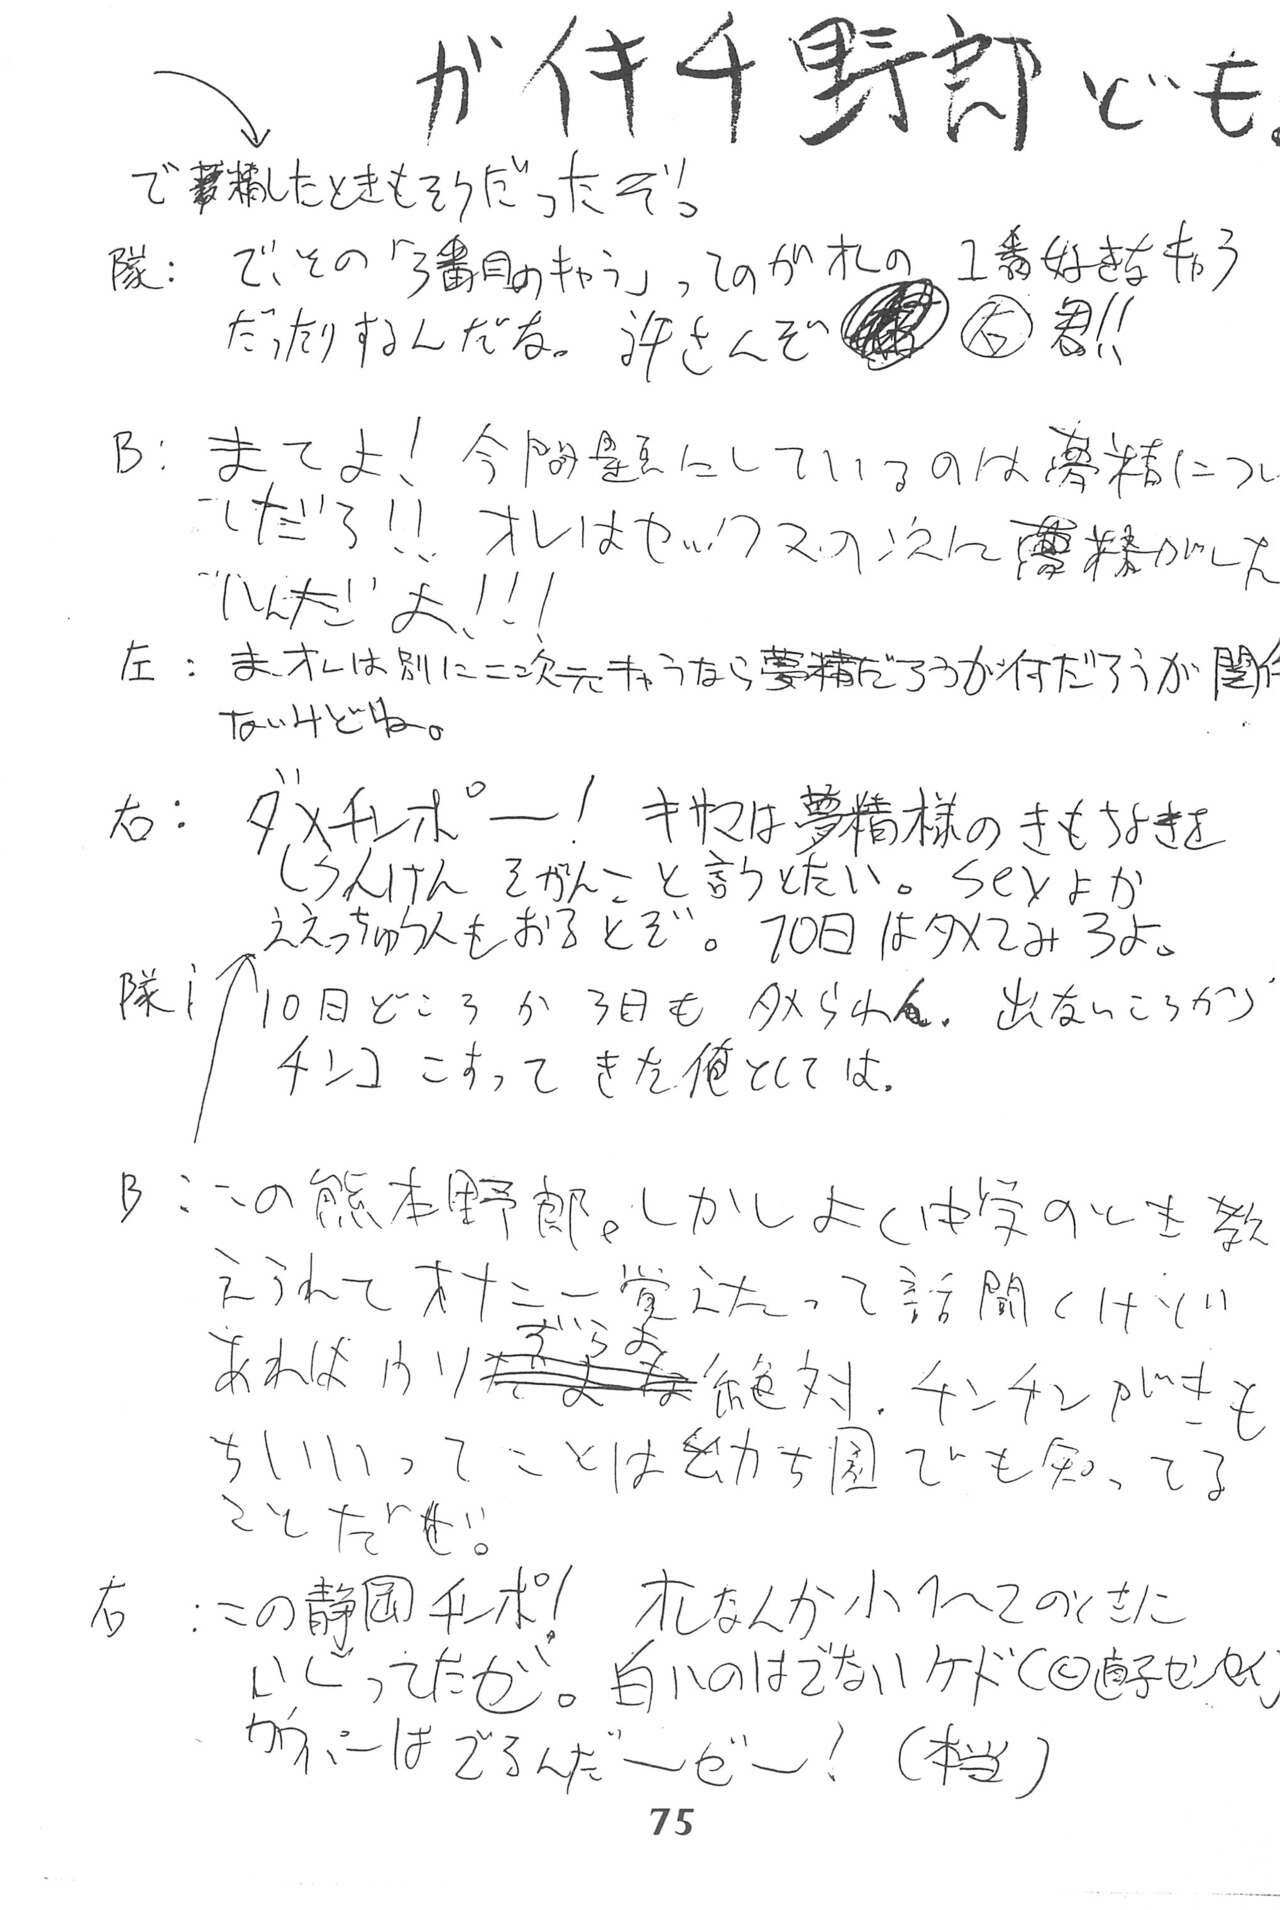 ガイキチ野郎ども。
で夢精したときもそうだったぞ。
隊：で、その「3番目のキャラ」ってのがオレの1番好きなキャラ
だったりするんだな。許さんぞ 右君!!
B：まてよ！今問題にしているのは夢精につい
てだろ!! オレはセックスの次に夢精がした
いんだよ!!!
左：ま、オレは別に二次元キャラなら夢精だろうが何だろうが関係
ないけどね。
右：ダメチンポー！キサマは夢精様のきもちよさを
しらんけんそがんこと言うとたい。sexよか
ええっちゅう人もおるとぞ。10日はタメてみろよ。
隊：10日どころか3日もタメられん。出ないころから
チンコこすってきた俺としては。
B：この熊本野郎。しかしよく中学のとき教
えられてオナニー覚えたって話聞くけどい
あればウソ だよ 絶対。チンチンがきも
ちいいってことは幼ち園でも知ってる
ことだぜ。
右：この静岡チンポ！オレなんか小1へ2のときに
いじってたぜ。白いのはでないケド(©直子センセイ)
はでるんだーぜー！（本当）
75